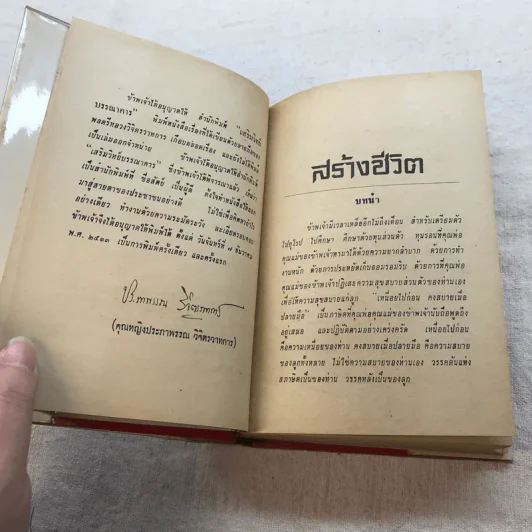 ข้าพเจ้าได้อนุญาตให้ สำนักพิมพ์ "เสริมวิทย์
บรรณาคาร" พิมพ์หนังสือเรื่องที่ได้เขียนด้วยลายมือของ
พลตรีหลวงวิจิตรวาทการ เกือบตลอดเรื่อง และยังไม่ได้พิมพ์
เป็นเล่มออกจำหน่าย ข้าพเจ้าได้อนุญาตให้สำนักพิมพ์
"เสริมวิทย์บรรณาคาร" ซึ่งข้าพเจ้าได้พิจารณาแล้ว เห็นว่า
เป็นสำนักพิมพ์ที่ ซื่อสัตย์ เป็นผู้ดี ตั้งใจทำหนังสือให้ออก
มาสู่สายตาของประชาชนอย่างดี ไม่ใช่เพื่อคิดหากำไร
อย่างเดียว ทำงานด้วยความระมัดระวัง ละเอียดรอบคอบ
ข้าพเจ้าจึงได้อนุญาตให้พิมพ์ได้ ตั้งแต่ วันจันทร์ที่ ๗ ธันวาคม
พ.ศ. ๒๕๑๓ เป็นการพิมพ์ครั้งเดียว และครั้งแรก
(คุณหญิงประภาพรรณ วิจิตรวาทการ)
สร้างชีวิต
บทนำ
ข้าพเจ้ามีเวลาเหลืออีกไม่ถึงเดือน สำหรับเตรียมตัว
ไปยุโรป ไปศึกษา ศึกษาด้วยทุนส่วนตัว ทุนรอนที่คุณพ่อ
คุณแม่ของข้าพเจ้าหามาได้ด้วยความยากลำบาก ด้วยการทำ
งานหนัก ด้วยการประหยัดเก็บออมรอมริบ ด้วยการที่คุณพ่อ
คุณแม่ของข้าพเจ้าปฏิเสธความสุขสบายส่วนตัวของท่านเอง
เพื่อให้ความสุขสบายแก่ลูก "เหนื่อยไปก่อน คงสบายเมื่อ
ปลายมือ" เป็นภาษิตที่คุณพ่อคุณแม่ของข้าพเจ้านับถือพูดถึง
อยู่เสมอ และปฏิบัติตามอย่างเคร่งครัด เหนื่อยไปก่อน
คือความเหนื่อยของท่าน คงสบายเมื่อปลายมือ คือความสบาย
ของลูกทั้งหลาย ไม่ใช่ความสบายของท่านเอง วรรคต้นแห่ง
สุภาษิตเป็นของท่าน วรรคหลังเป็นของลูก